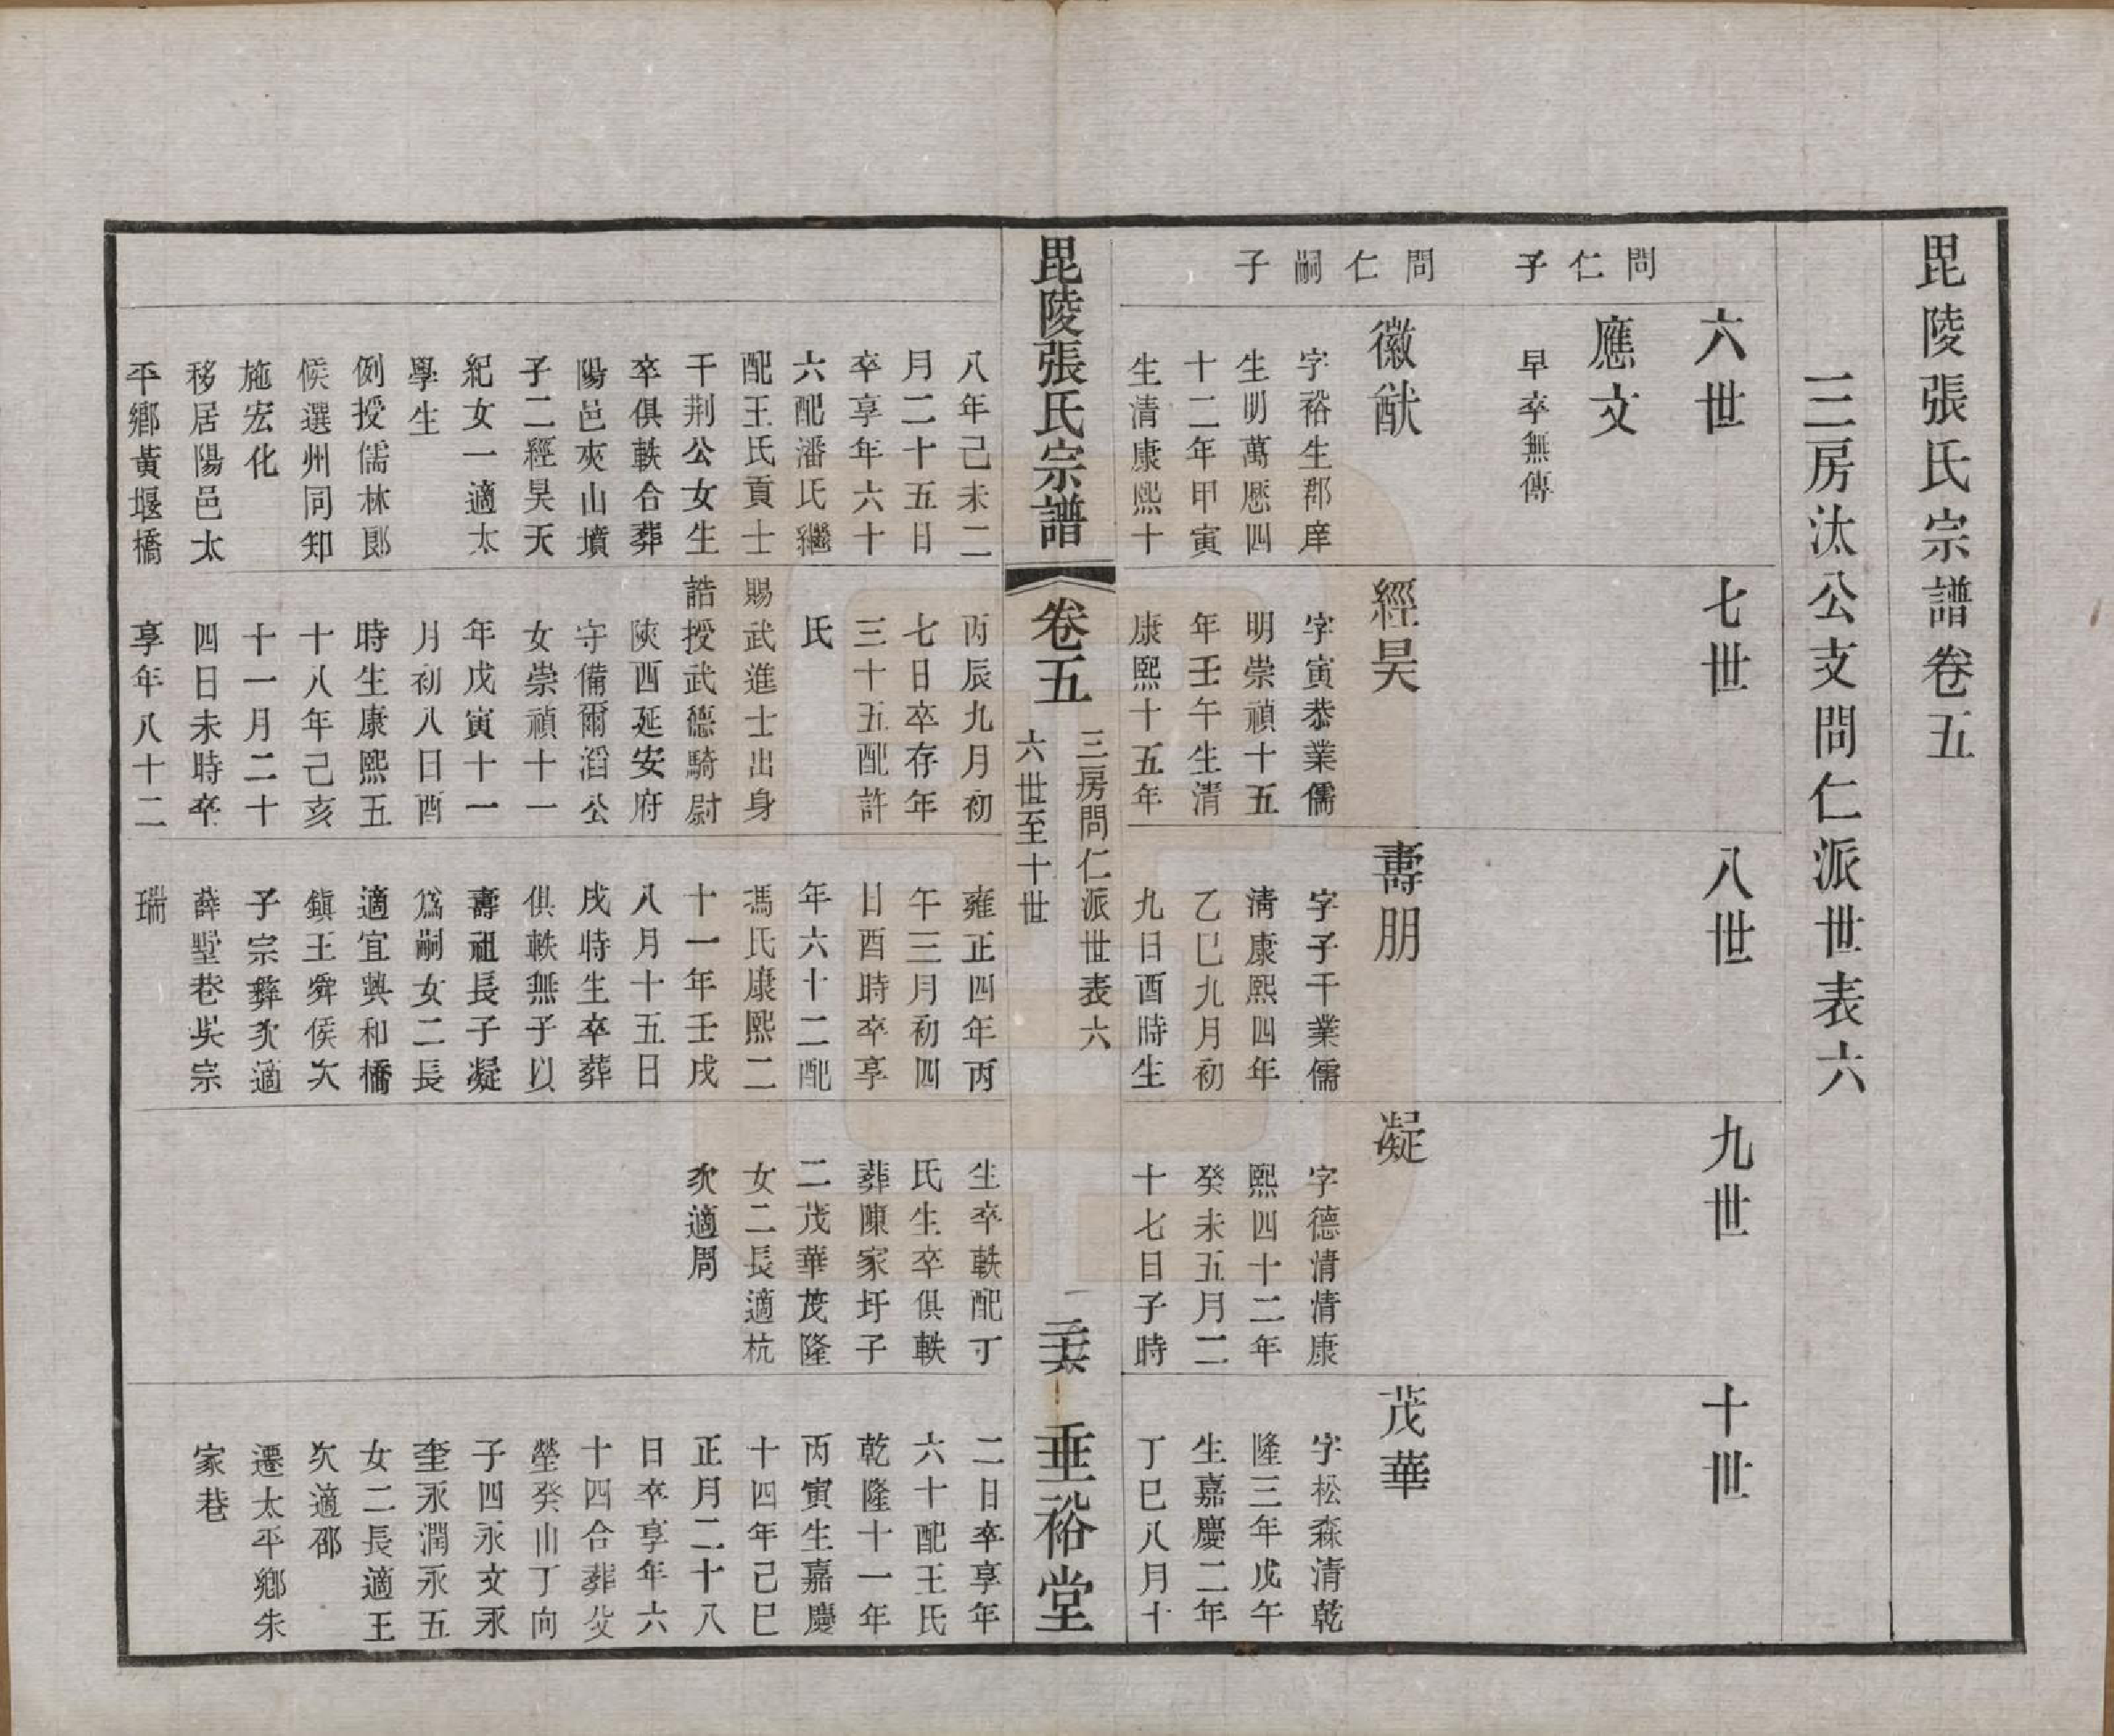 毘陵張氏宗譜卷五
三房汰公支問仁派世表六
六世
七世
八世
九世
十世
問仁子
應文
早卒無傳
問仁嗣子
徽猷
字裕生郡庠
生明萬厯四
十二年甲寅
生清康熙十
八年己未二
月二十五日
卒享年六十
六配潘氏繼
配王氏貢士
干荆公女生
卒俱軼合葬
陽邑夾山墳
子二經昊天
紀女一適太
學生
例授儒林郎
候選州同知
施宏化
移居陽邑太
平鄉黃堰橋
經昊
字寅恭業儒
明崇禎十五
年壬午生清
康熙十五年
丙辰九月初
七日卒存年
三十五配許
氏
賜武進士出身
誥授武德騎尉
陝西延安府
守備爾滔公
女崇禎十一
年戊寅十一
月初八日酉
時生康熙五
十八年己亥
十一月二十
四日未時卒
享年八十二
壽朋
字子干業儒
清康熙四年
乙巳九月初
九日酉時生
雍正四年丙
午三月初四
日酉時卒享
年六十二配
馮氏康熙二
十一年壬戌
八月十五日
戌時生卒葬
俱軼無子以
壽祖長子凝
爲嗣女二長
適宜興和橋
鎮王舜侯次
子宗彝次適
薛墅巷吳宗
瑞
凝
字德清清康
熙四十二年
癸未五月二
十七日子時
生卒軼配丁
氏生卒俱軼
葬陳家圩子
二茂華茂隆
女二長適杭
次適周
茂華
字松森清乾
隆三年戊午
生嘉慶二年
丁巳八月十
二日卒享年
六十配王氏
乾隆十一年
丙寅生嘉慶
十四年己巳
正月二十八
日卒享年六
十四合葬父
塋癸山丁向
子四永文永
奎永潤永五
女二長適王
次適邵
遷太平鄉朱
家巷
毘陵張氏宗譜
卷五
三房問仁派世表六
六世至十世
垂裕堂